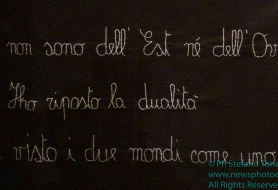 non sono dell' Est né dell' Ov
Ho riposto la dualità
visto i due mondi come uno
© Ph Stefano
www.newsphoto
All Rights Reserve